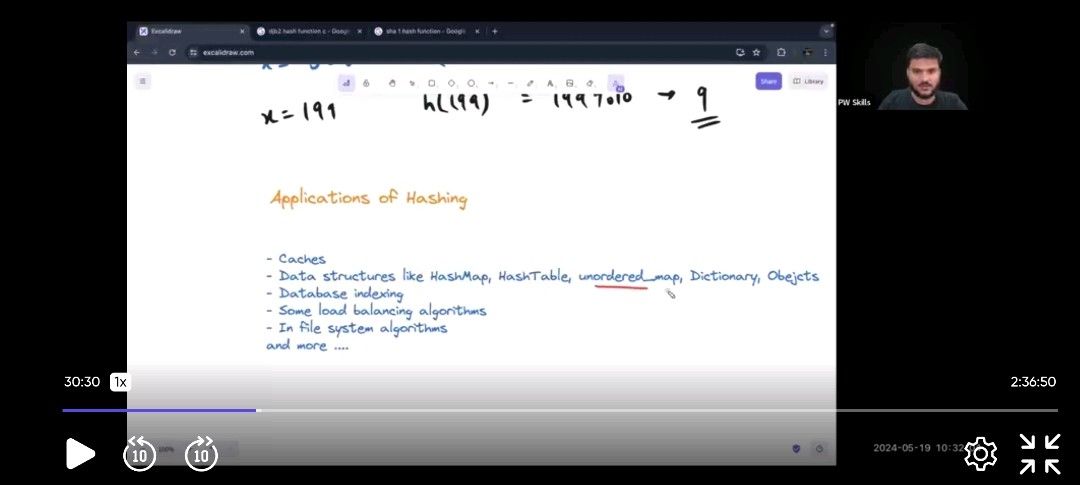 Excalidraw
djb2 hash function c - Google
sha 1 hash function - Google
excalidraw.com
Share
Library
x = 199 h(199) = 199%10 → 9
PW Skills
Applications of Hashing
- Caches
- Data structures like HashMap, HashTable, unordered_map, Dictionary, Obejcts
- Database indexing
- Some load balancing algorithms
- In file system algorithms
and more ....
30:30 1x 2:36:50
10 10
100%
2024-05-19 10:32